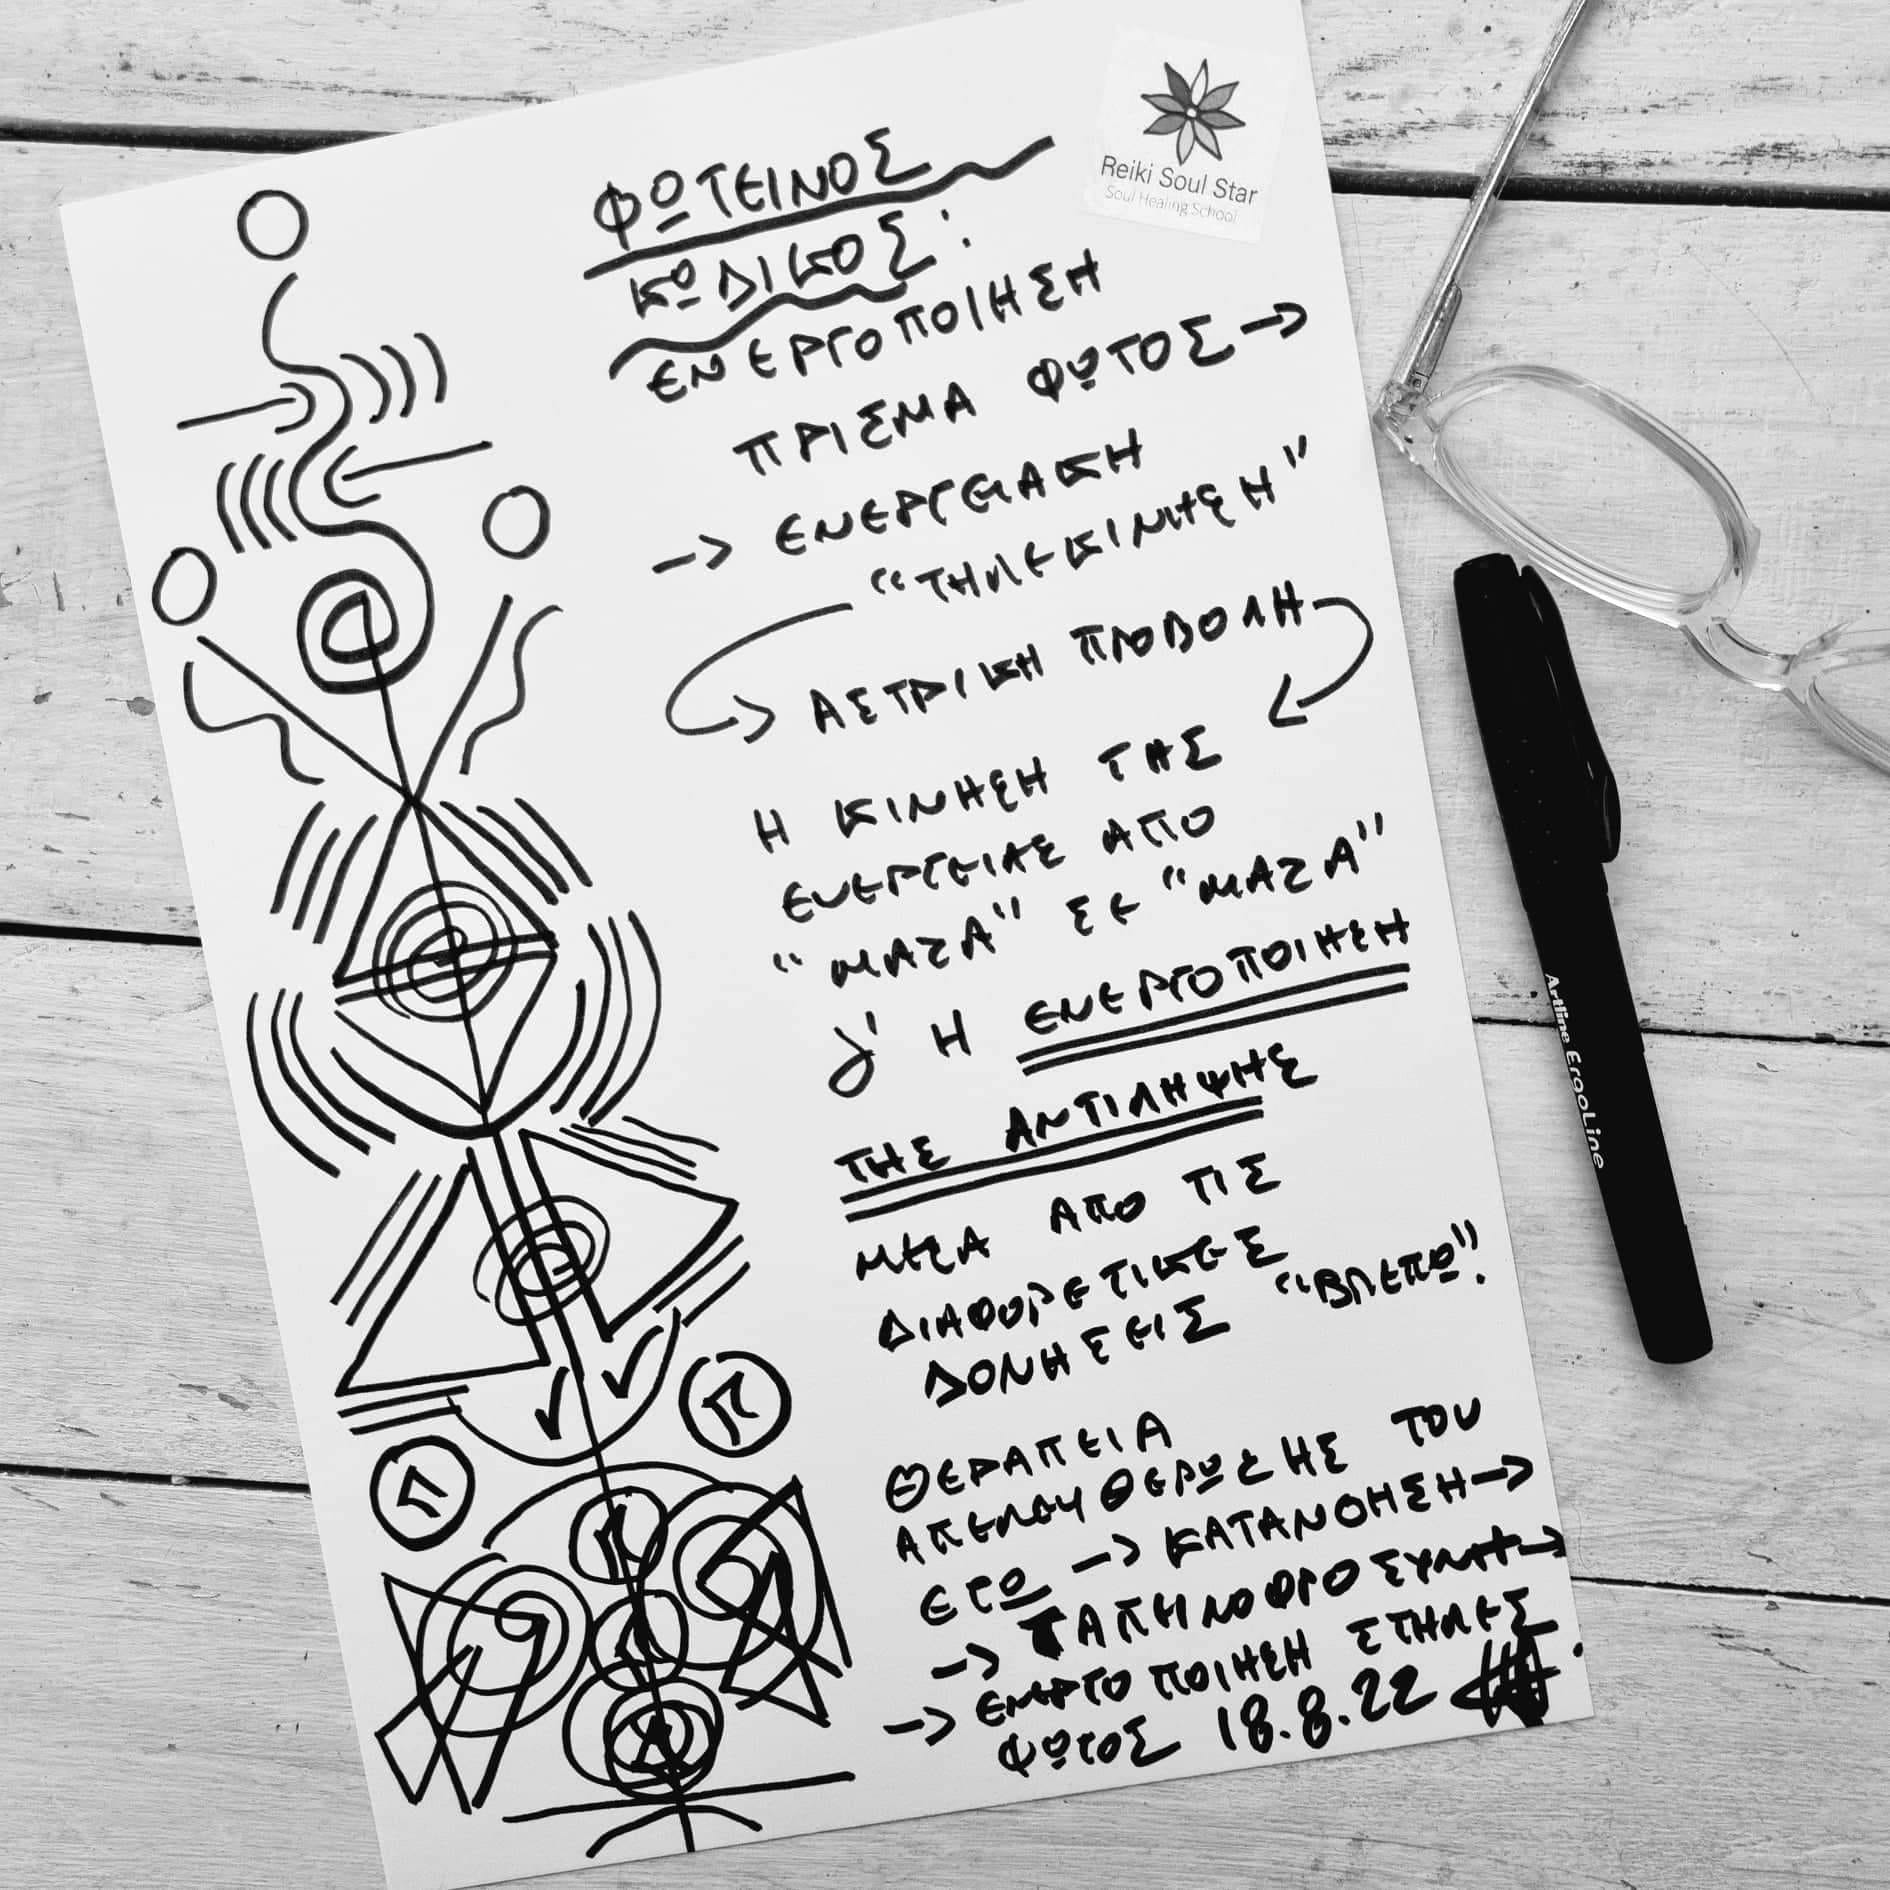 Reiki Soul Star
Soul Healing School
ΦΩΤΕΙΝΟΣ
ΚΩΔΙΚΟΣ:
ΕΝΕΡΓΟΠΟΙΗΣΗ
ΠΡΙΣΜΑ ΦΩΤΟΣ →
→ ΕΝΕΡΓΕΙΑΚΗ
"ΤΗΛΕΚΙΝΗΣΗ"
→ ΑΣΤΡΙΚΗ ΠΡΟΒΟΛΗ
Η ΚΙΝΗΣΗ ΤΗΣ
ΕΝΕΡΓΕΙΑΣ ΑΠΟ
"ΜΑΖΑ" ΣΕ "ΜΑΖΑ"
Η ΕΝΕΡΓΟΠΟΙΗΣΗ
ΤΗΣ ΑΝΤΙΛΗΨΗΣ
ΜΕΣΑ ΑΠΟ ΤΙΣ
ΔΙΑΦΟΡΕΤΙΚΕΣ
ΔΟΝΗΣΕΙΣ "ΒΛΕΠΩ".
ΘΕΡΑΠΕΙΑ
ΑΠΕΛΕΥΘΕΡΩΣΗΣ ΤΟΥ
ΕΓΩ → ΚΑΤΑΝΟΗΣΗ →
→ ΤΑΠΕΙΝΟΦΡΟΣΥΝΗ →
→ ΕΝΕΡΓΟΠΟΙΗΣΗ ΣΤΗΛΕΣ
ΦΩΤΟΣ 18.8.22
Artline ErgoLine